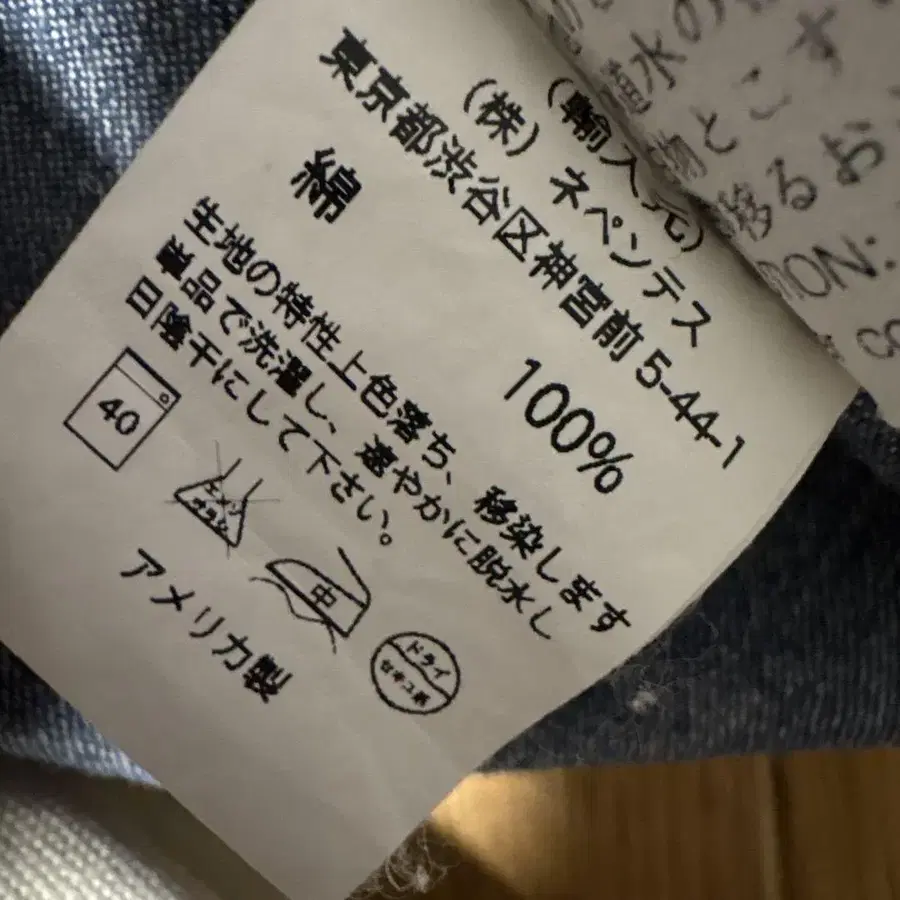 (輸入元)
(株)ネペンテス
東京都渋谷区神宮前5-44-1
綿 100%
生地の特性上色落ち、移染します
単品で洗濯し、速やかに脱水し
日陰干にして下さい。
40
エンソ
サラシ
中
ドライ
セキユ系
アメリカ製
水の
とこす
移るお
ON: